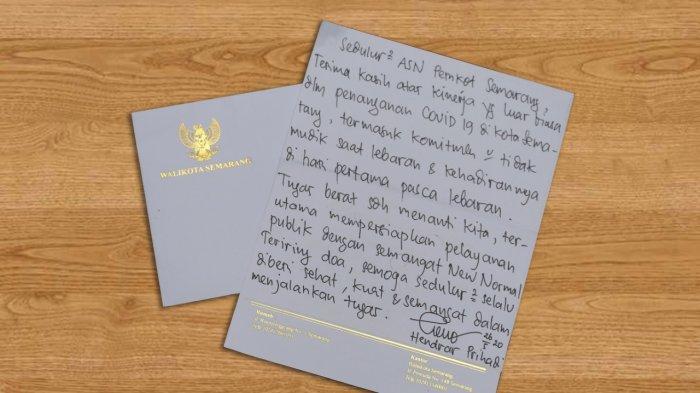 WALIKOTA SEMARANG
Sedulur² ASN Pemkot Semarang,
Terima kasih atas kinerja yg luar biasa
dlm penanganan COVID 19 di kota Sema-
rang, termasuk komitmen u/ tidak
mudik saat lebaran & kehadirannya
di hari pertama pasca lebaran.
Tugas berat sdh menanti kita, ter-
utama mempersiapkan pelayanan
publik dengan semangat New Normal
Teriring doa, semoga sedulur² selalu
diberi sehat, kuat & semangat dalam
menjalankan tugas.
26 20
Hendrar Prihadi
Rumah
Semarang
Kantor
Balaikota Semarang
Jl. Pemuda No. 148 Semarang